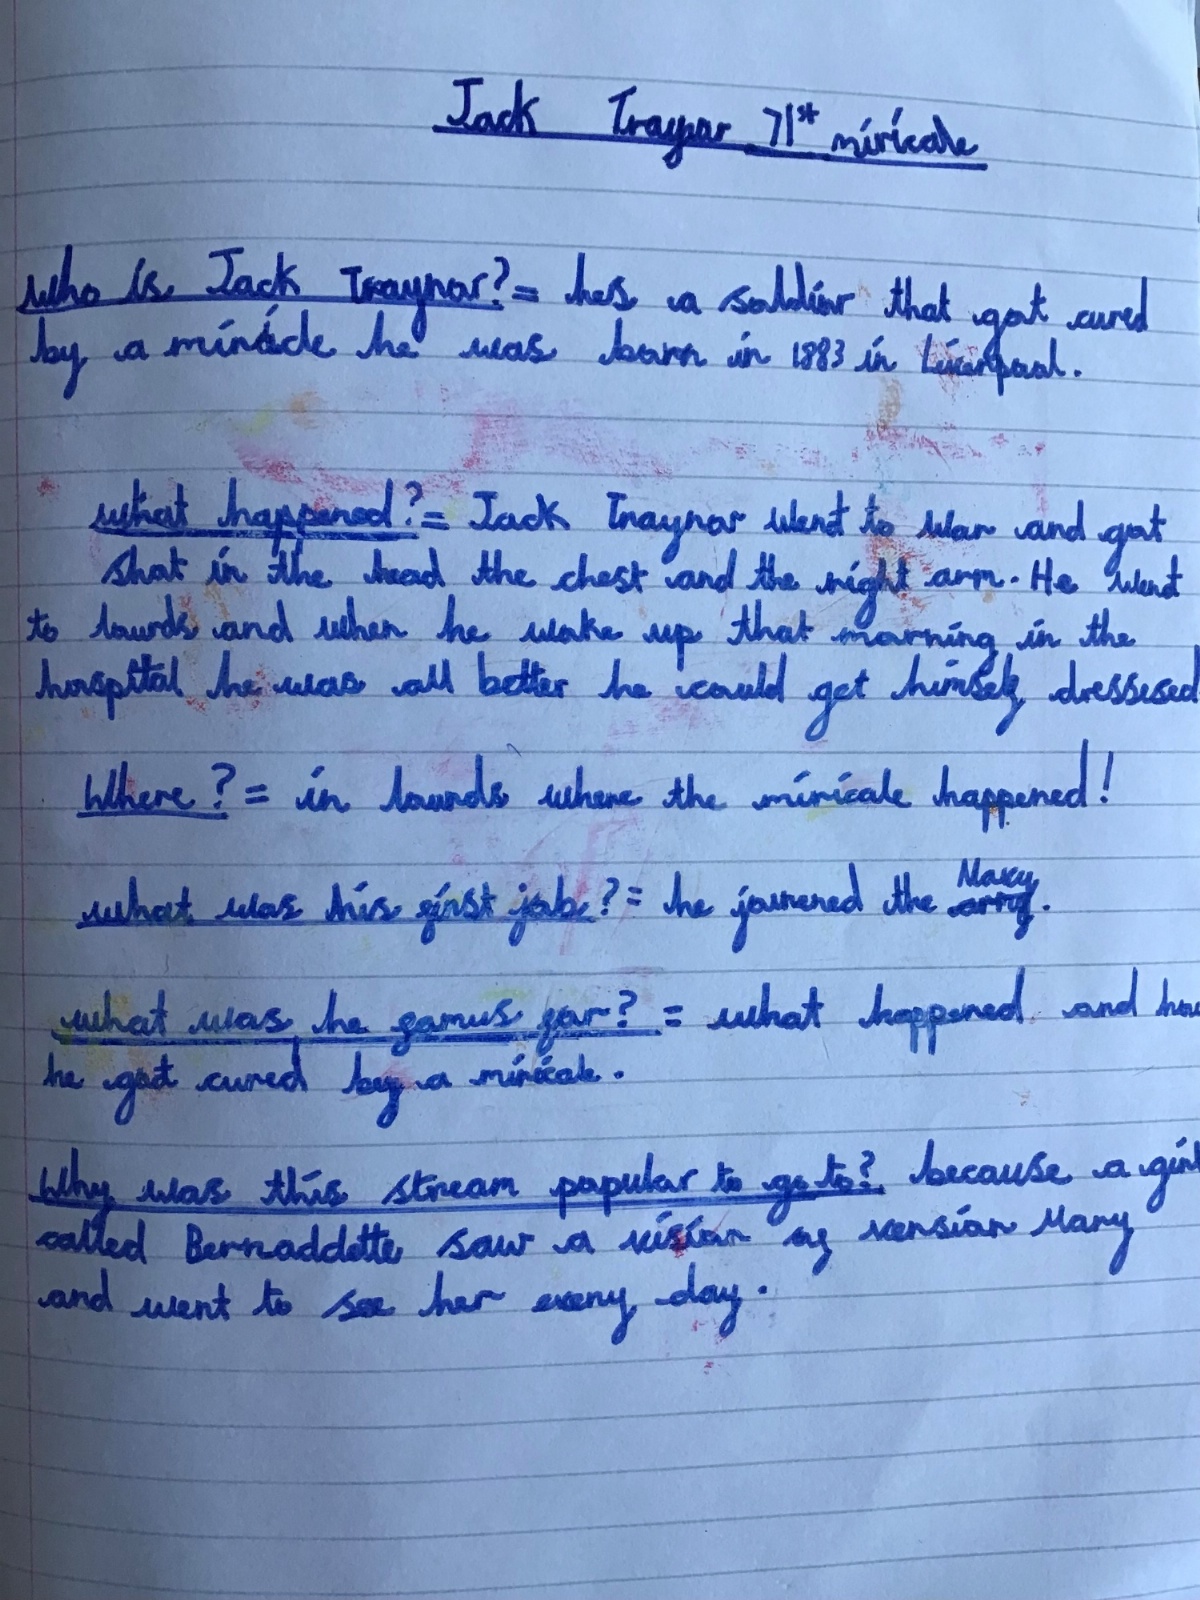 Jack Traynor 71st miricale
Who is Jack Traynor? = hes a soldior that got cured
by a miracle he was born in 1883 in Liverpool.
what happened? = Jack Traynor went to war and got
shot in the head the chest and the right arm. He went
to lourds and when he woke up that morning in the
hospital he was all better he could get himself dressesed
Where? = in lourds where the miricale happened!
what was his first job? = he jourened the Navy.
what was he famus for? = what happened and how
he got cured by a miricale.
Why was this stream popular to go to? because a girl
called Bernaddette saw a vision of version Mary
and went to see her every day.